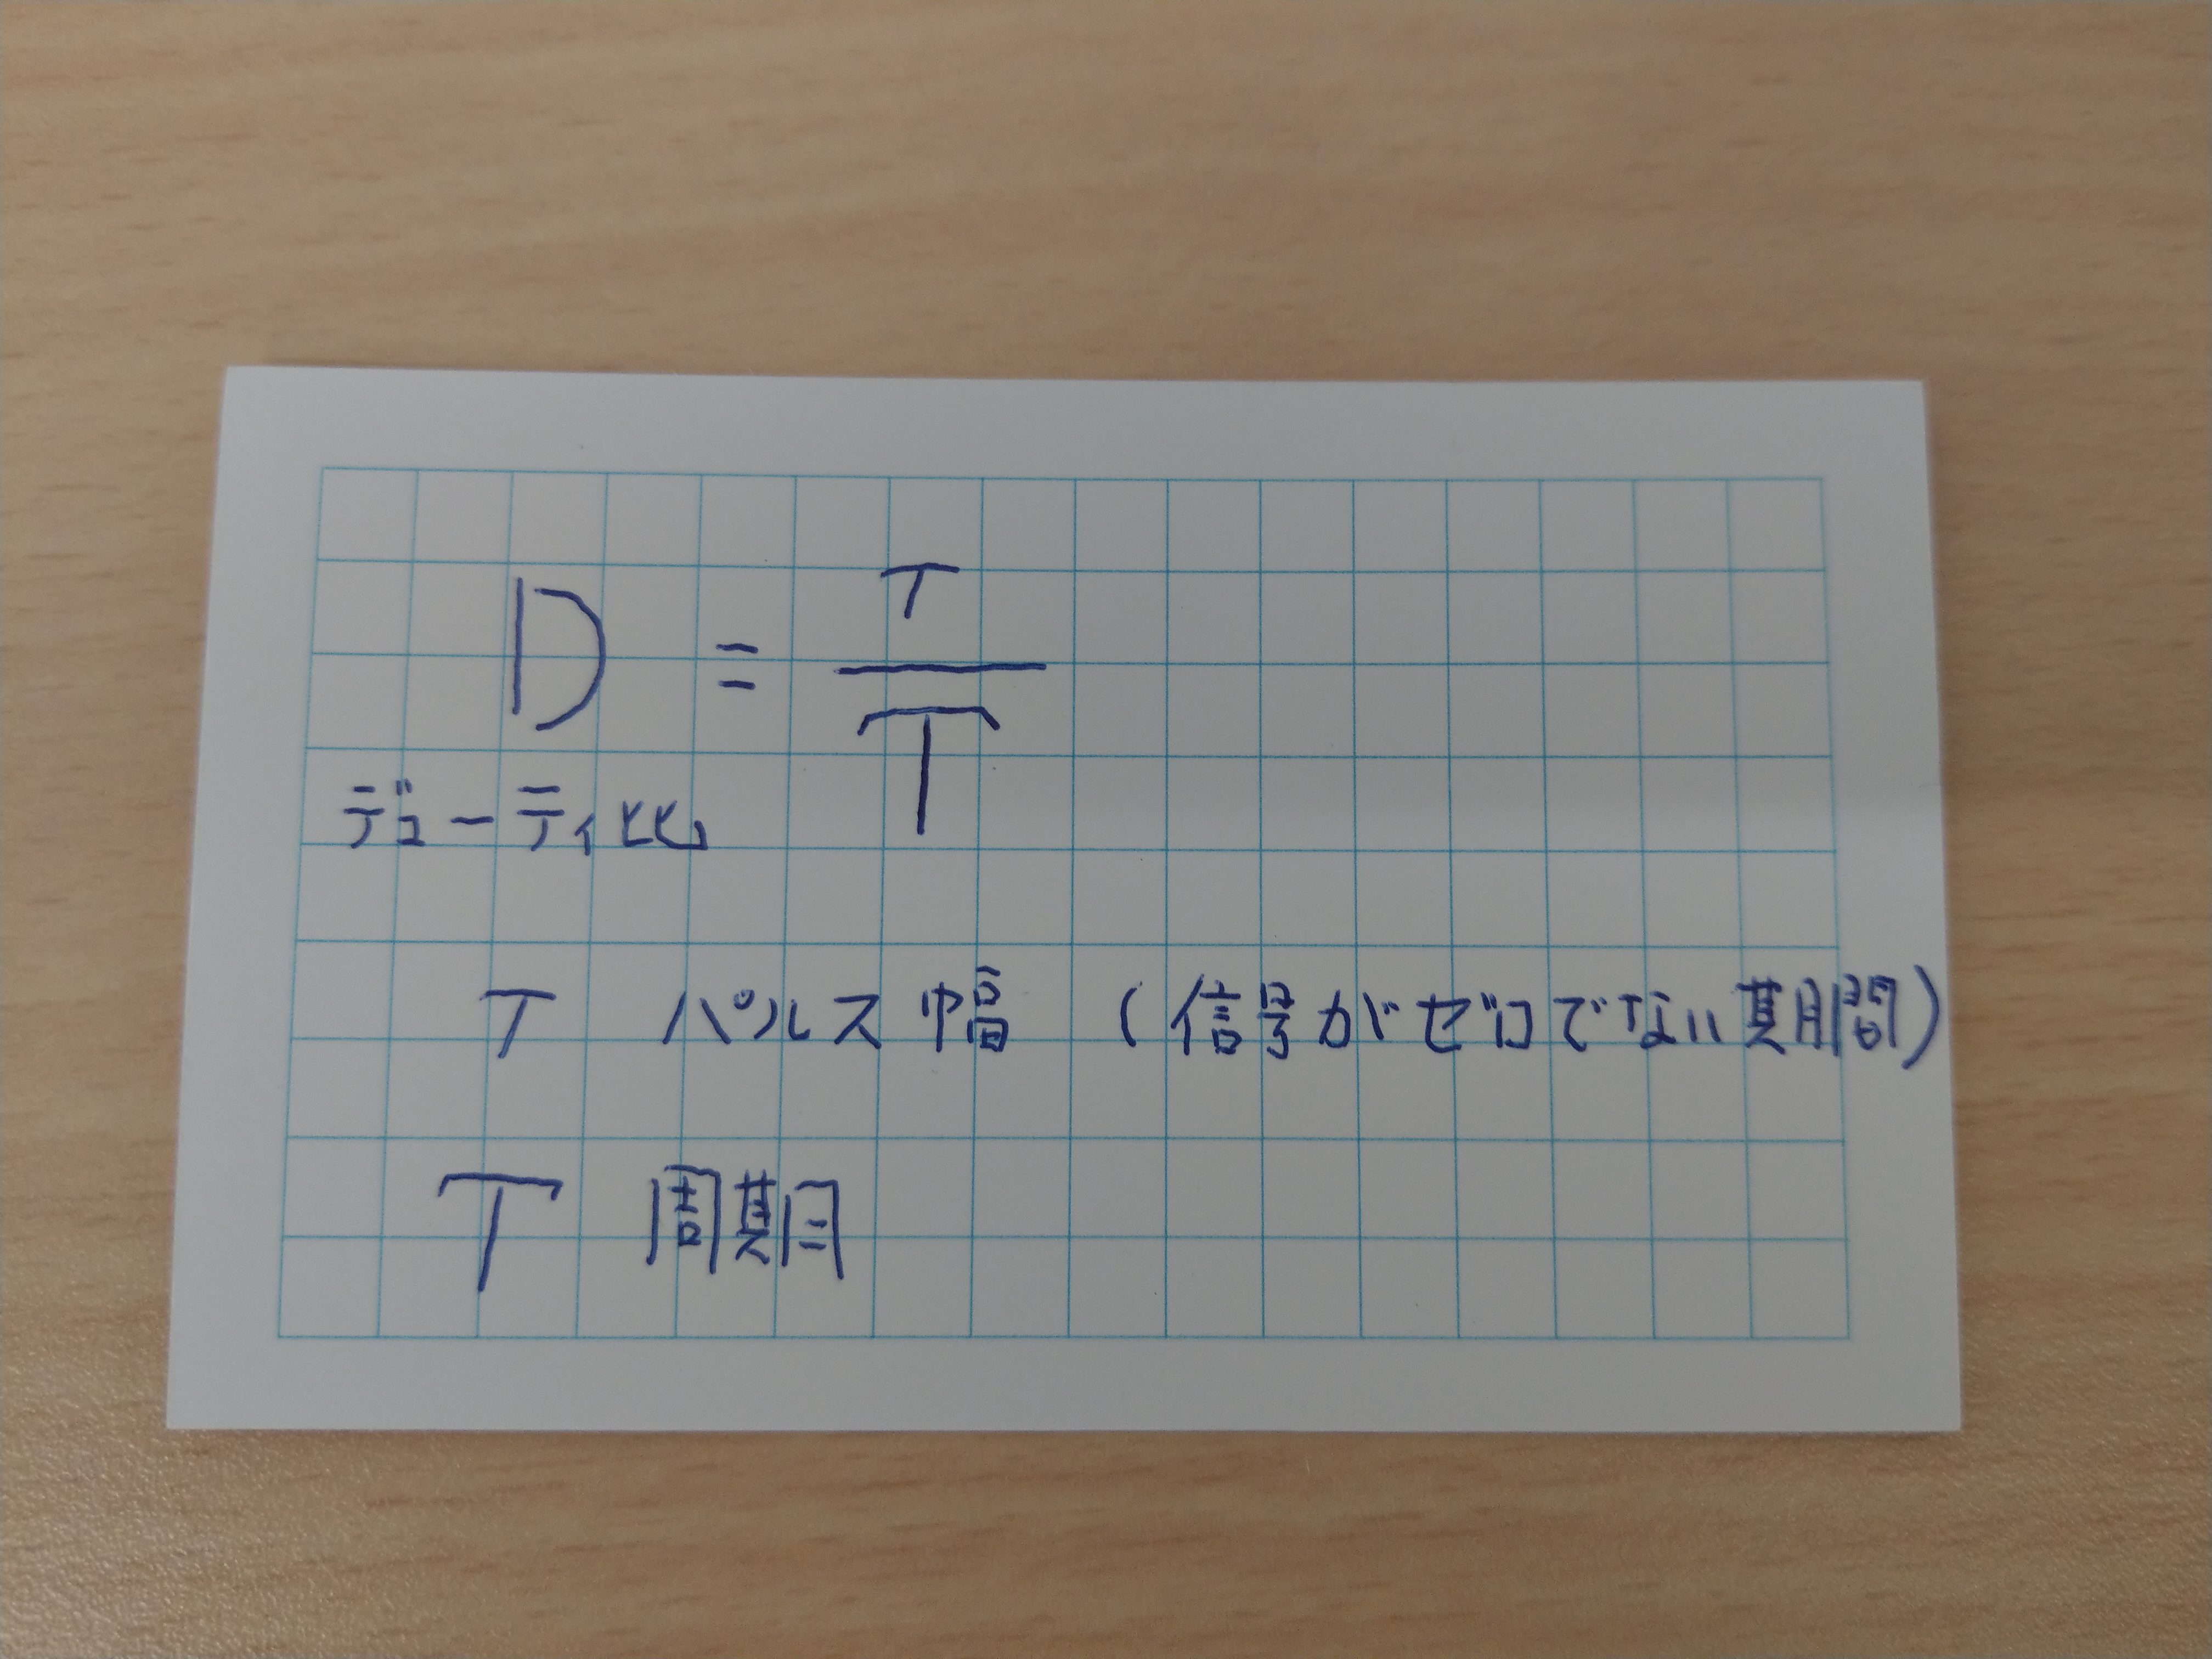 D = τ / T
デューティ比
τ パルス幅 (信号がゼロでない期間)
T 周期